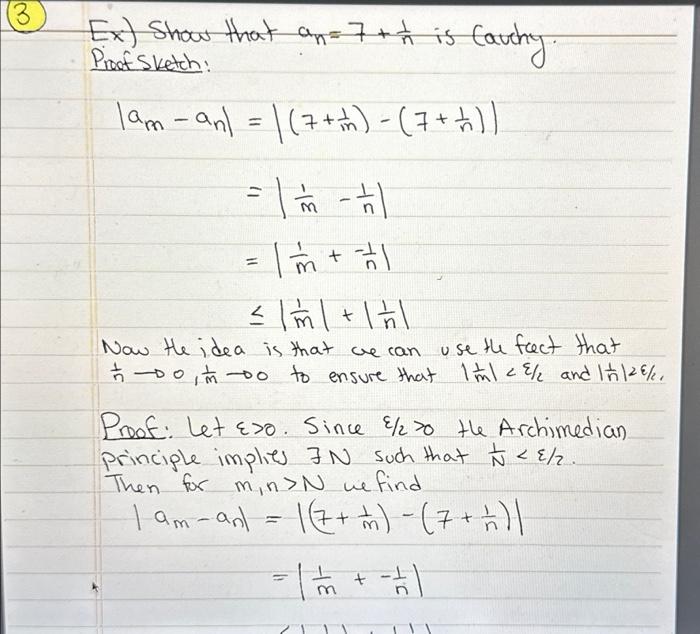 3
Ex) Show that aₙ = 7 + 1/n is Cauchy.
Proof Sketch:
|aₘ - aₙ| = |(7 + 1/m) - (7 + 1/n)|
= |1/m - 1/n|
= |1/m + -1/n|
≤ |1/m| + |1/n|
Now the idea is that we can use the fact that
1/n → 0, 1/m → 0 to ensure that |1/m| < ε/2 and |1/n| < ε/2.
Proof: Let ε>0. Since ε/2 >0 the Archimedian
principle implies ∃N such that 1/N < ε/2.
Then for m,n>N we find
|aₘ - aₙ| = |(7 + 1/m) - (7 + 1/n)|
= |1/m + -1/n|